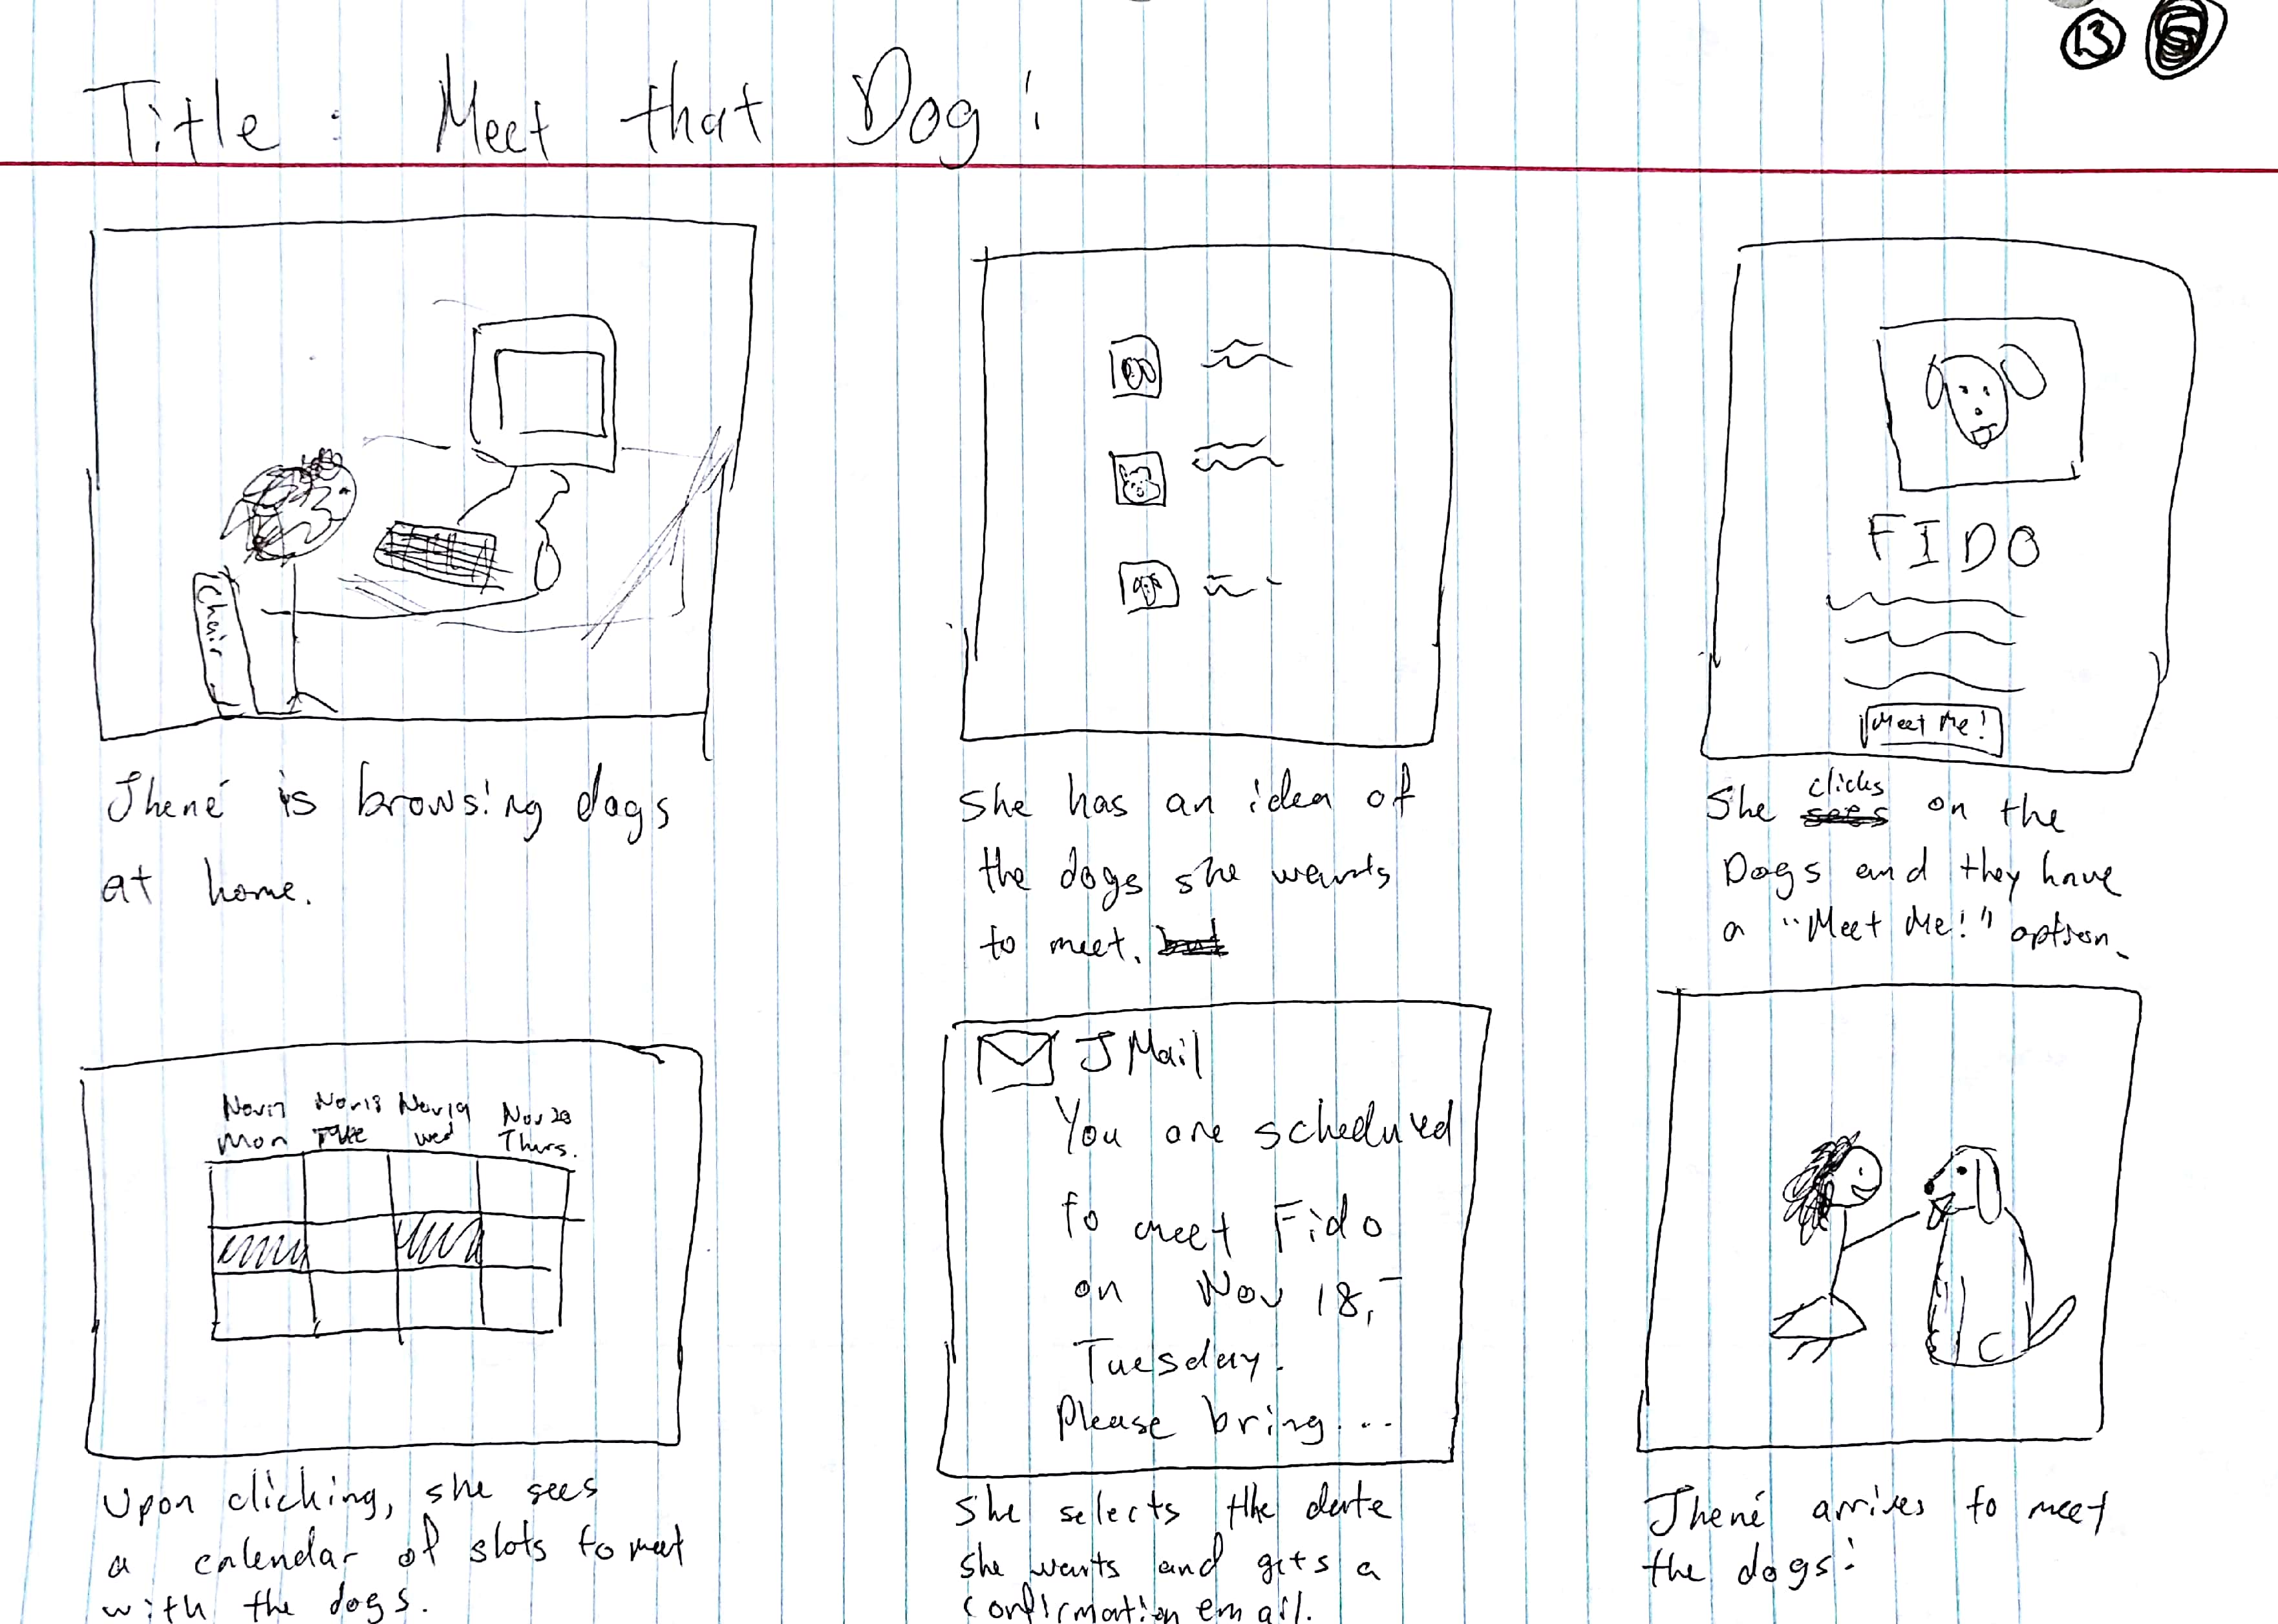 13
Title: Meet that Dog!
Chair
Jhené is browsing dogs
at home.
She has an idea of
the dogs she wants
to meet. but
FIDO
Meet Me!
She sees clicks on the
Dogs and they have
a "Meet Me!" option.
Nov 17 Nov 18 Nov 19 Nov 20
Mon Tue Wed Thurs.
Upon clicking, she sees
a calendar of slots to meet
with the dogs.
JMail
You are scheduled
to meet Fido
on Nov 18,
Tuesday.
Please bring...
She selects the date
she wants and gets a
confirmation email.
Jhené arrives to meet
the dogs!